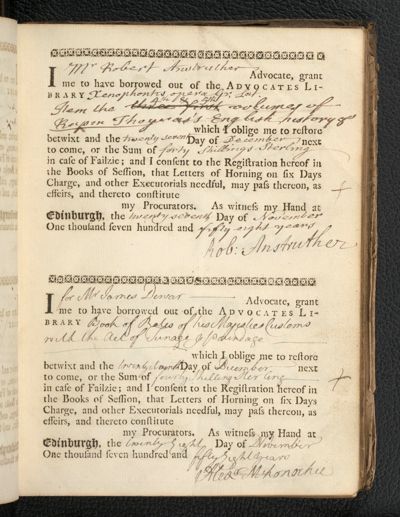 I Mr Robert Anstruther Advocate, grant
me to have borrowed out of the ADVOCATES LI-
BRARY Xenophontis opera Gr. Lat.
4th & 5th
Item the volumes of
Rapin Thoyras's English history
which I oblige me to restore
betwixt and the twenty seventh Day of December next
to come, or the Sum of forty Shillings Sterling
in case of Failzie; and I consent to the Registration hereof in
the Books of Session, that Letters of Horning on six Days
Charge, and other Executorials needful, may pass thereon, as
effeirs, and thereto constitute
my Procurators. As witness my Hand at
Edinburgh, the twenty seventh Day of November
One thousand seven hundred and fifty eight years
Rob: Anstruther
I for Mr James Dewar Advocate, grant
me to have borrowed out of the ADVOCATES LI-
BRARY Book of Rates of his Majesties Customs
with the Act of Tunage & poundage
which I oblige me to restore
betwixt and the Day of December next
to come, or the Sum of fourty Shilling Sterling
in case of Failzie; and I consent to the Registration hereof in
the Books of Session, that Letters of Horning on six Days
Charge, and other Executorials needful, may pass thereon, as
effeirs, and thereto constitute
my Procurators. As witness my Hand at
Edinburgh, the twenty Eight Day of November
One thousand seven hundred and fifty Eight years
Alexr McKonochie